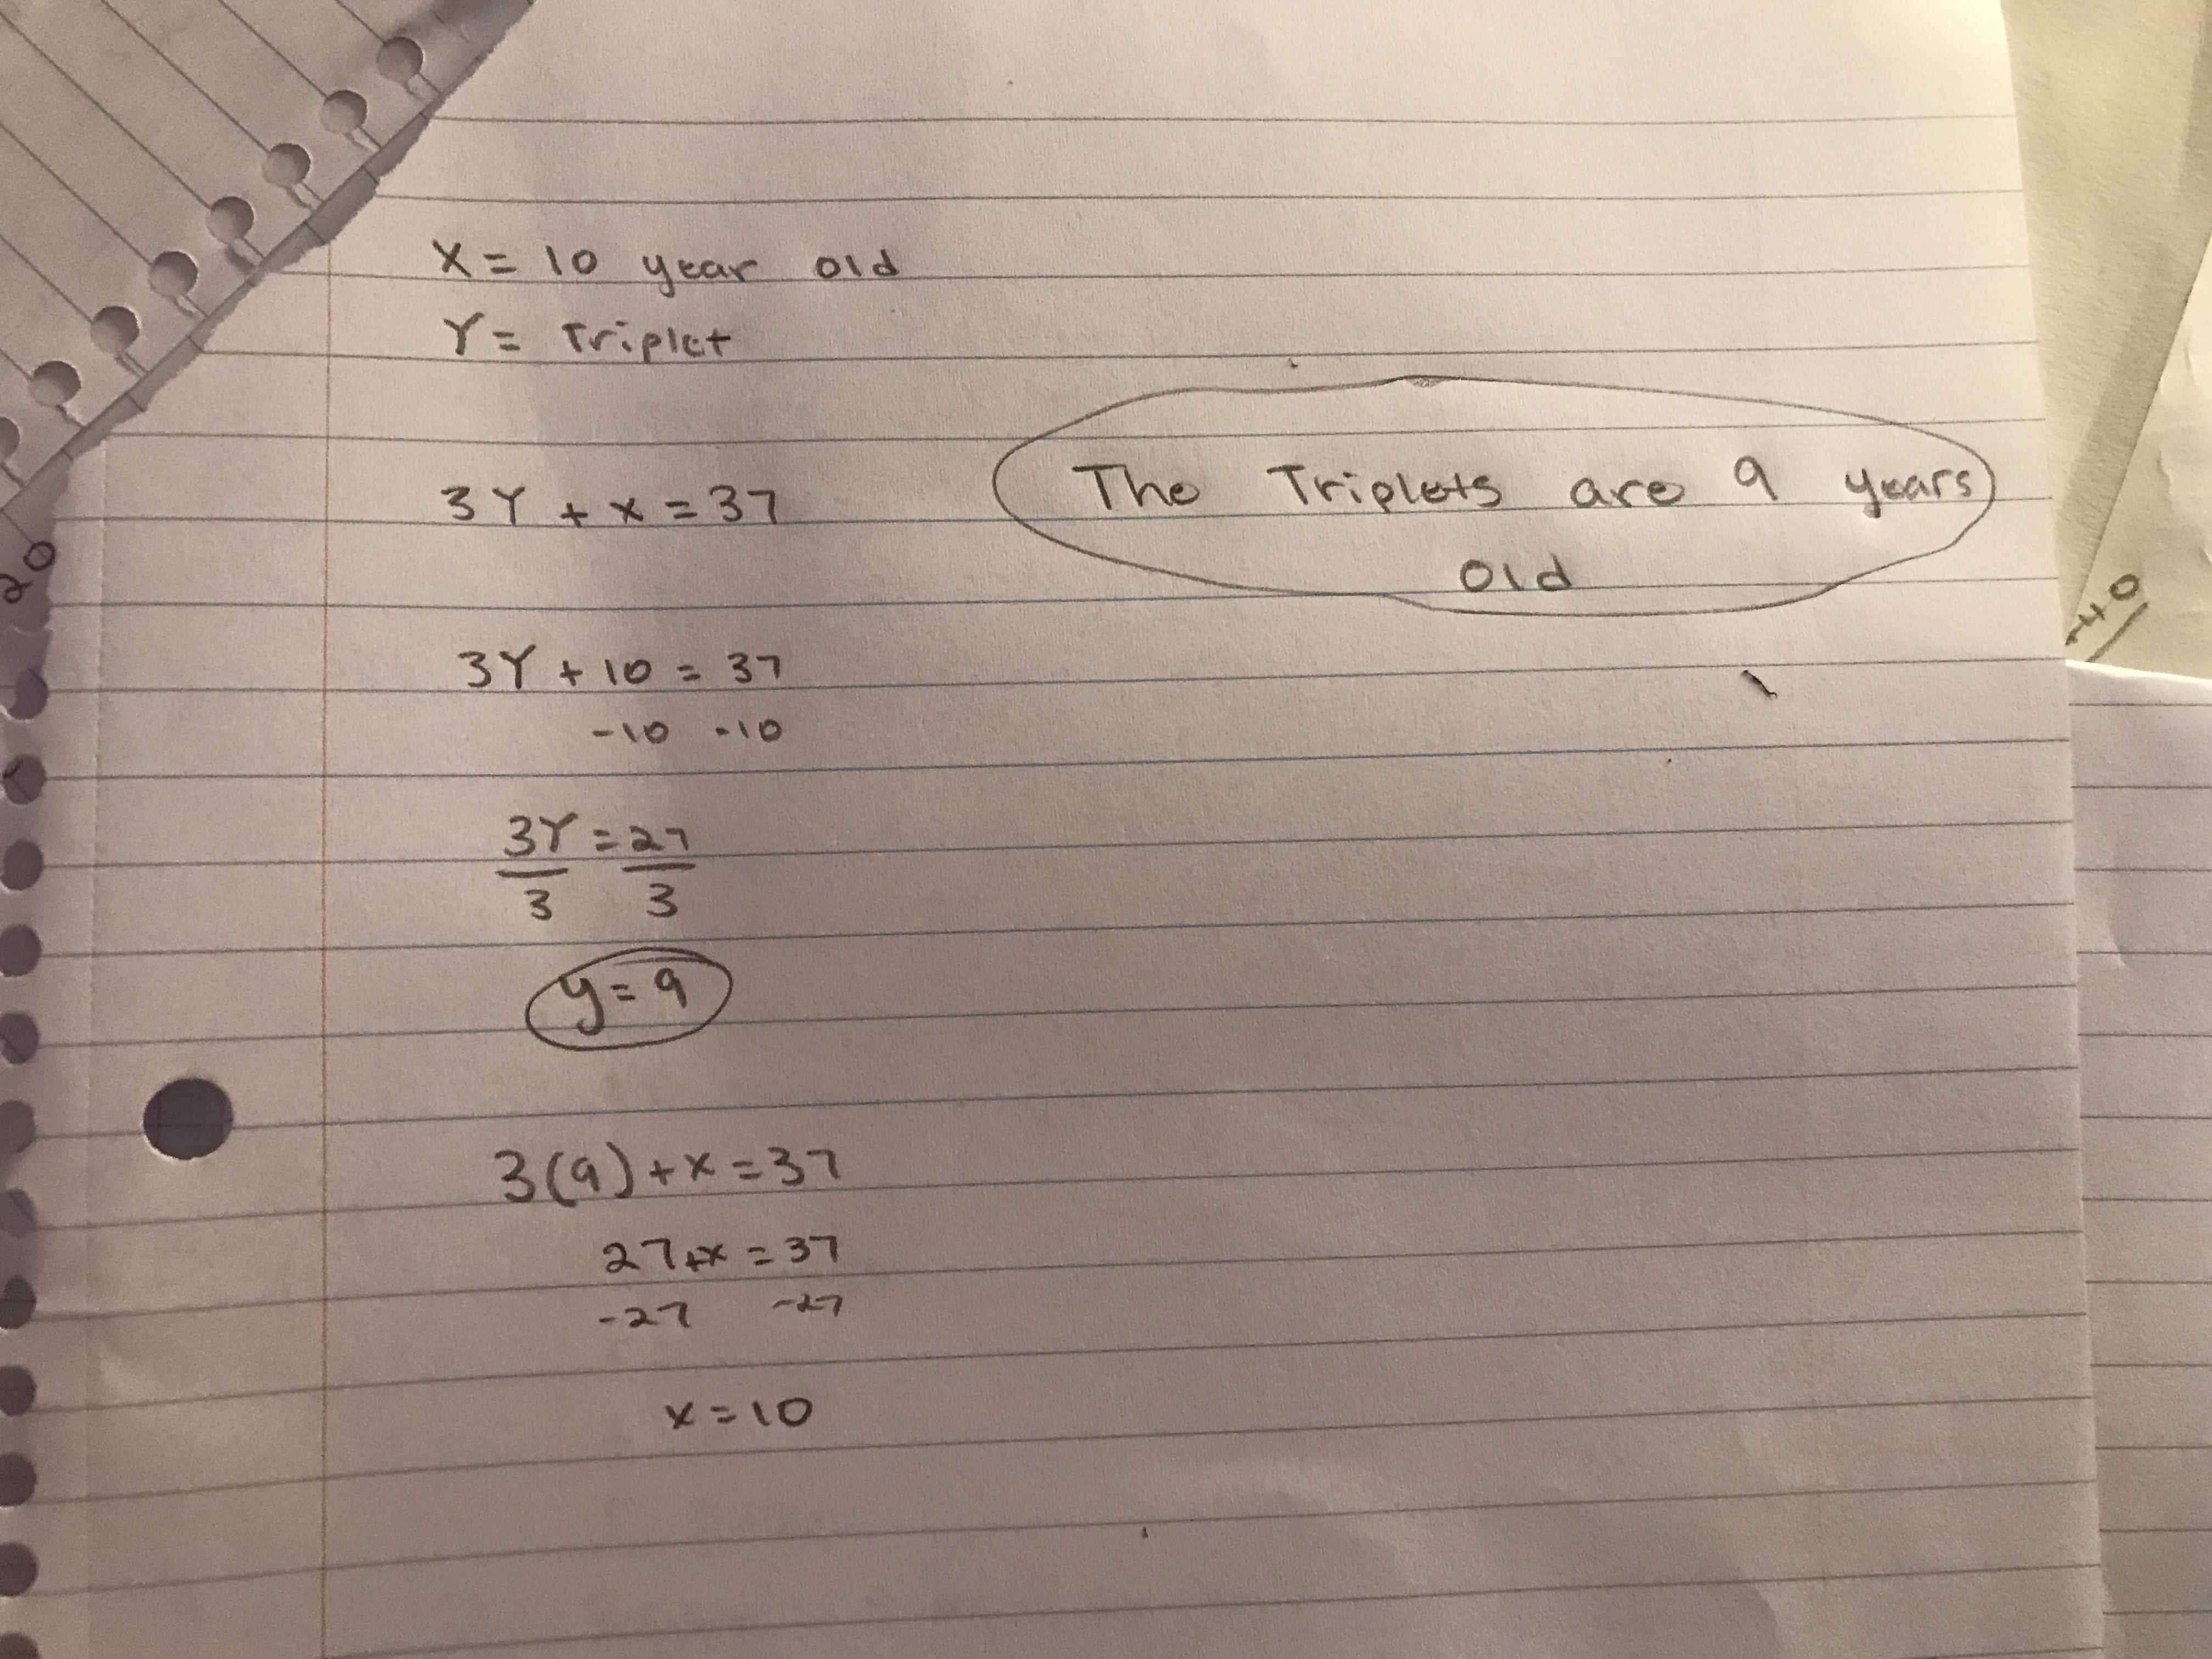 X = 10 year old
Y = Triplet
3Y + x = 37
The Triplets are 9 years
old
3Y + 10 = 37
-10 -10
3Y = 27
3 3
y = 9
3(9) + x = 37
27 + x = 37
-27 -27
x = 10
20
-40